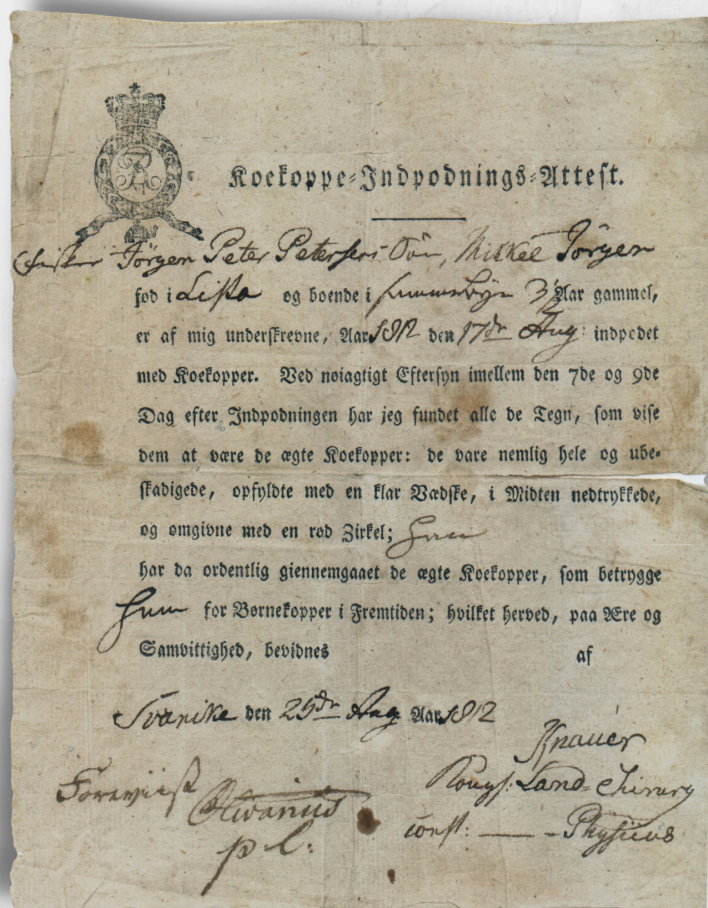 Koekoppe-Indpodnings-Attest.
Fisker Jörgen Peter Petersens Sön, Mikkel Jörgen
fød i Lista og boende i 3½ Aar gammel,
er af mig underskrevne, Aar 1812 den 17de Aug: indpodet
med Koekopper. Ved nøiagtigt Eftersyn imellem den 7de og 9de
Dag efter Indpodningen har jeg fundet alle de Tegn, som vise
dem at være de ægte Koekopper: de vare nemlig hele og ube-
skadigede, opfyldte med en klar Vædske, i Midten nedtrykkede,
og omgivne med en rød Zirkel; han
har da ordentlig giennemgaaet de ægte Koekopper, som betrygge
ham for Børnekopper i Fremtiden; hvilket herved, paa Ære og
Samvittighed, bevidnes af
Svanike den 25de Aug Aar 1812
Knauer
Foreviist Kongl: Land-Chirurg
const: — - Physicus
p. l: